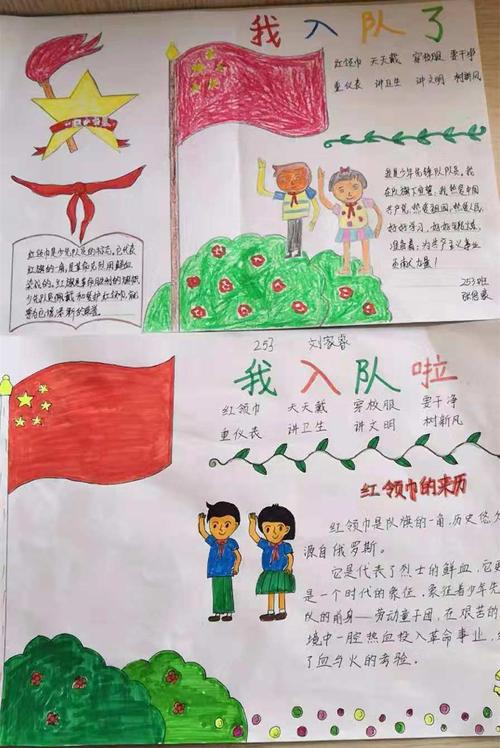 我入队了
红领巾 天天戴 穿校服 要干净
重仪表 讲卫生 讲文明 树新风
我是少年先锋队队员,我
在队旗下宣誓,我热爱中国
共产党,热爱祖国,热爱人民,
好好学习,好好锻炼,
准备着:为共产主义事业
贡献力量!
253班
红领巾是少先队员的标志,它代表
红旗的一角,是革命先烈用鲜血
染成的。
253 刘家蓉
我入队啦
红领巾 天天戴 穿校服 要干净
重仪表 讲卫生 讲文明 树新风
红领巾的来历
红领巾是队旗的一角,历史悠久
源自俄罗斯。
它是代表了烈士的鲜血,它更
是一个时代的象征。象征着少年先
队的前身——劳动童子团,在艰苦的
境中一腔热血投入革命事业,
了血与火的考验。